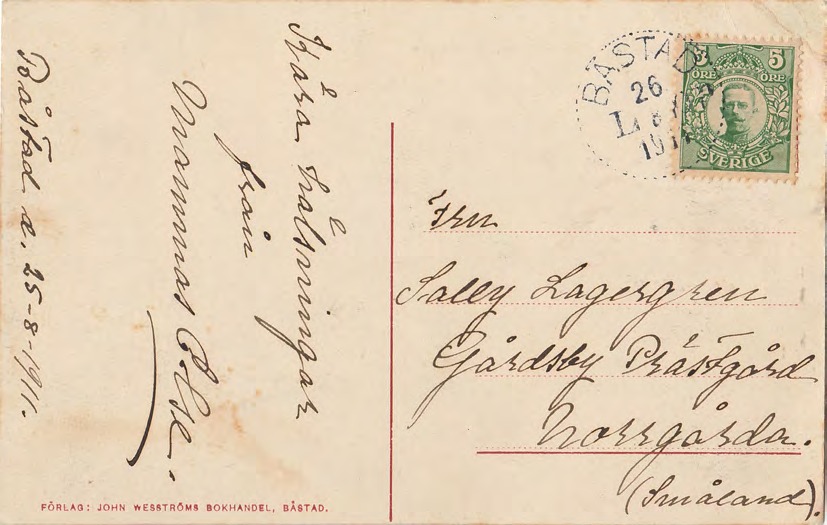 Båstad d. 25-8-1911.
Kära hälsningar
från
Mammas Else.
FÖRLAG: JOHN WESSTRÖMS BOKHANDEL, BÅSTAD.
BÅSTAD
26
8
1911
5 5
ÖRE ÖRE
SVERIGE
Frn
Sally Lagergren
Gårdsby Prästgård
Norrgårda.
(Småland).